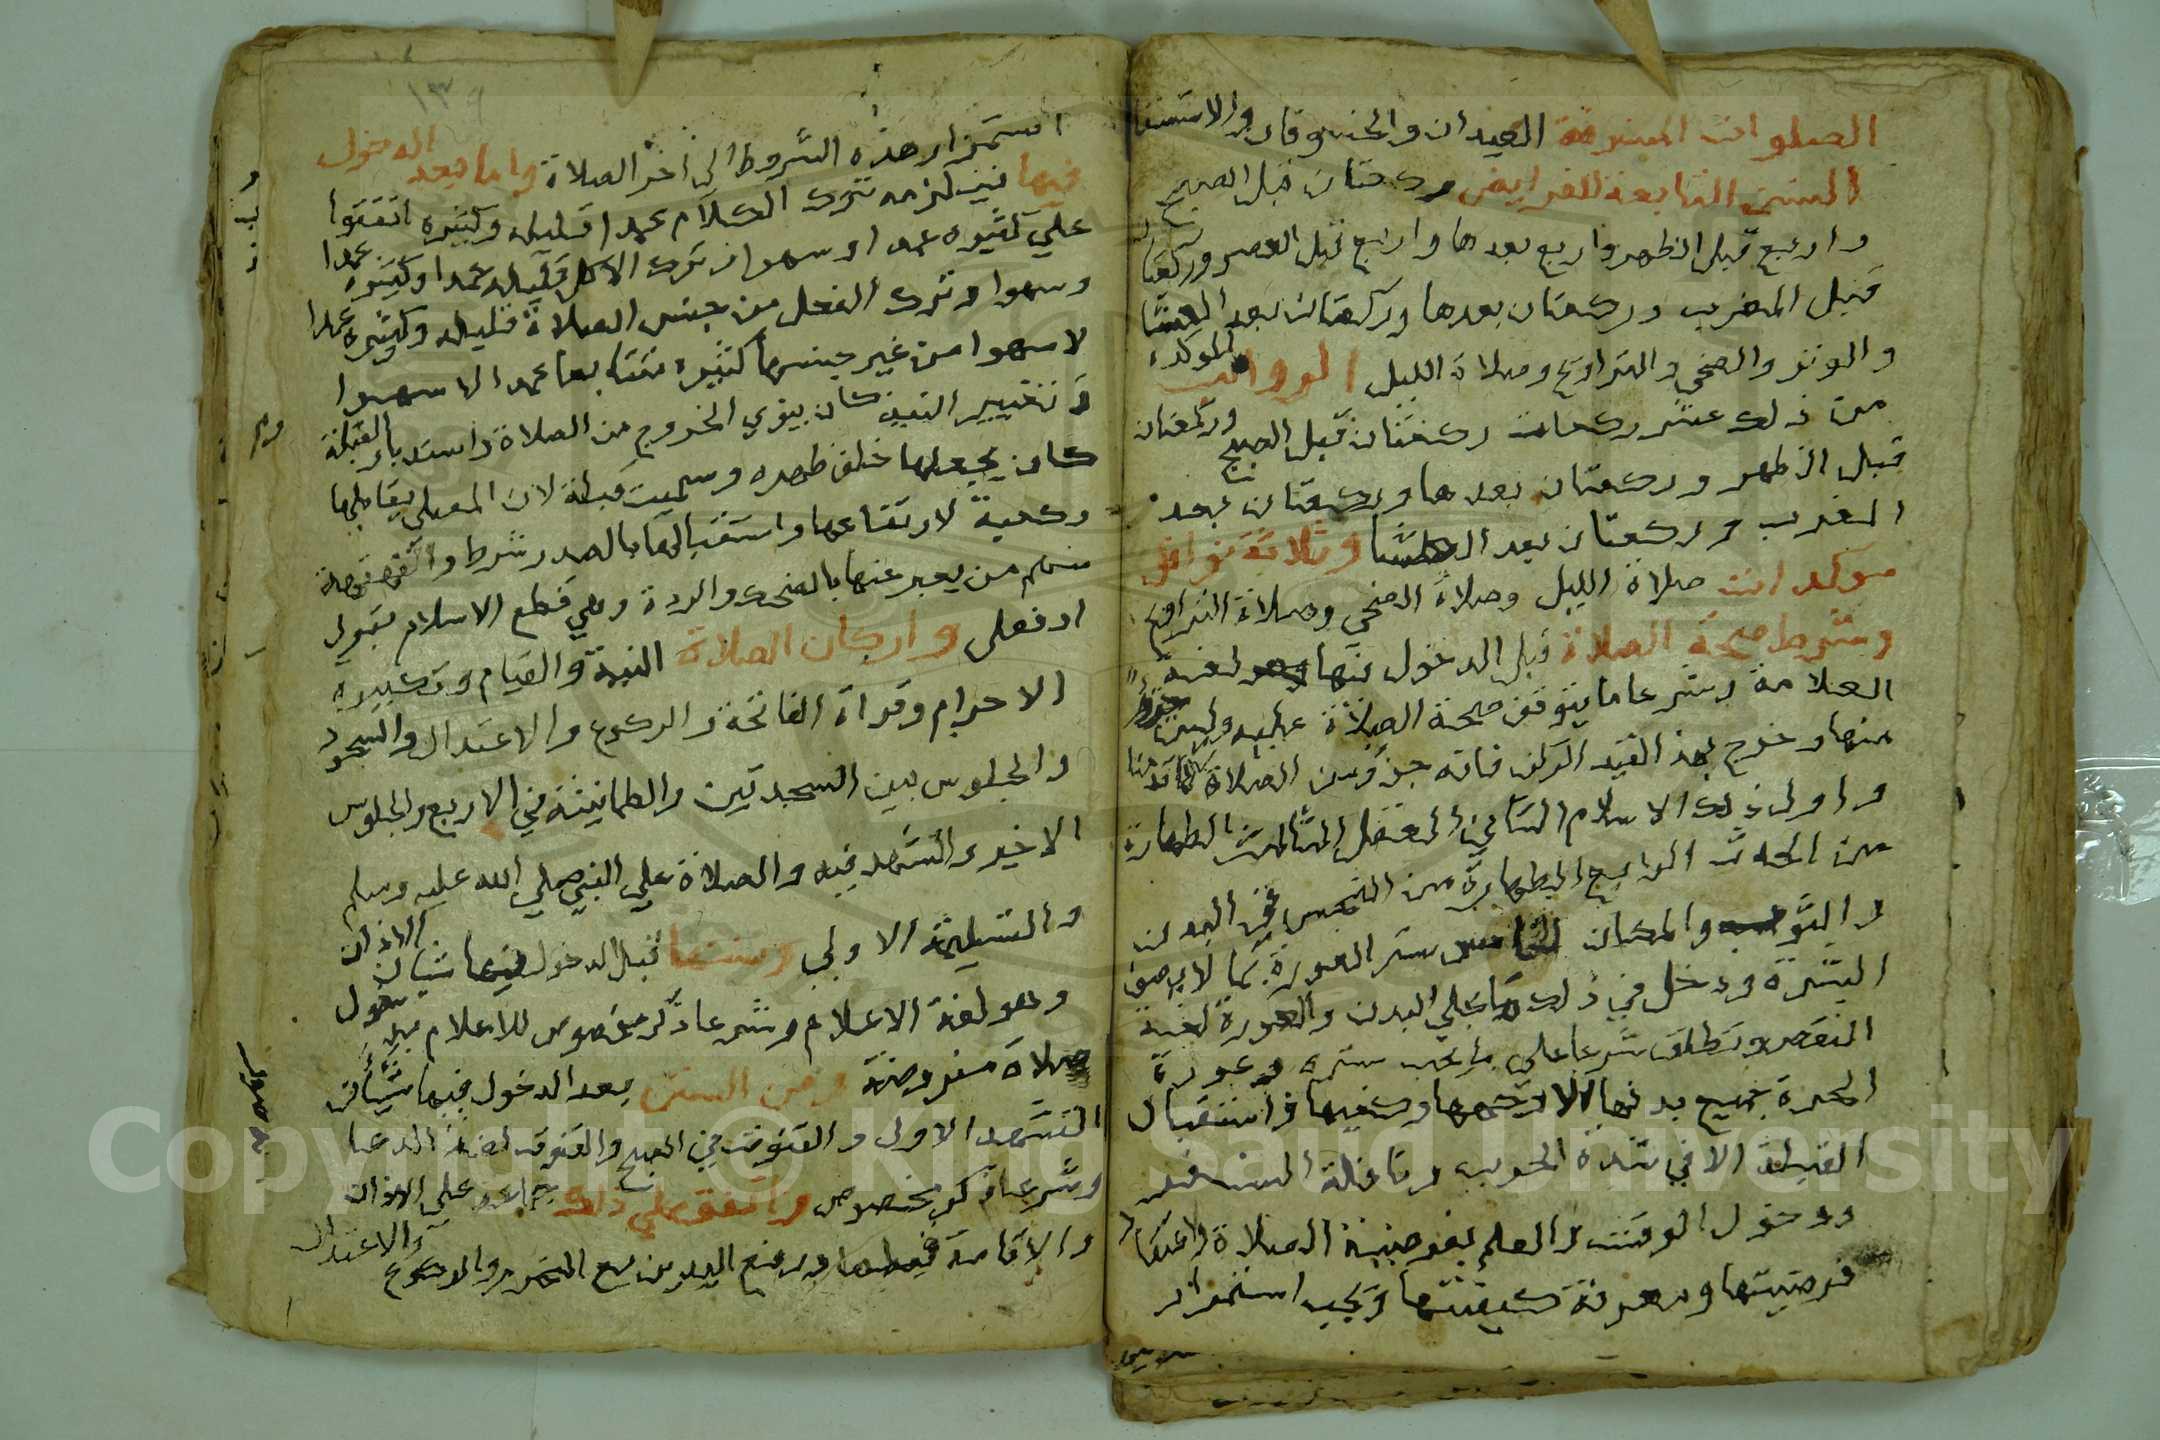 الصلوات المسنونة العيدان والخسوفان والاستسقا
السنن التابعة للفرايض ركعتان قبل الصبح
واربع قبل الظهر واربع بعدها واربع قبل العصر وركعتان
قبل المغرب وركعتان بعدها وركعتان بعد العشا
والوتر والضحي والتراويح وصلاة الليل الرواتب الموكدة
من ذلك عشر ركعات ركعتان قبل الصبح وركعتان
قبل الظهر وركعتان بعدها وركعتان بعد
المغرب وركعتان بعد العشا وثلاثة نوافل
موكدات صلاة الليل وصلاة الضحي وصلاة التراويح
وشرط صحة الصلاة قبل الدخول فيها وهو لغة
العلامة وشرعا ما يتوقف صحة الصلاة عليه وليس جزؤ
منها وخرج بهذ القيد الركن فانه جزؤ من الصلاة
واول ذلك الاسلام الثاني العقل الثالث الطهارة
من الحدث الرابع الطهارة من النجس في البدن
والثوب والمكان الخامس ستر العورة بما لا يصف
البشرة ودخل في ذلك ما يلي البدن والعورة لغة
النقص وتطلق شرعا علي ما يجب ستره وعورة
الحرة جميع بدنها الا وجهها وكفيها واستقبال
القبلة الا في شدة الخوف ونافلة السفر
ودخول الوقت والعلم بفرضية الصلاة واعتقاد
فرضيتها ومعرفة كيفيتها ويجب استمرار
١٣٩
استمرار هذه الشروط الي اخر الصلاة واما بعد الدخول
فيها فيلزمه ترك الكلام عمدا قليله وكثيره اتفقوا
علي كثيره عمدا او سهوا وترك الاكل قليله عمدا وكثيره عمدا
وسهوا وترك الفعل من جنس الصلاة قليله وكثيره عمدا
لا سهوا من غير جنسها كثيره متتابعا عمدا لا سهوا
وتغيير النية كان ينوي الخروج من الصلاة واستدبار القبلة
كان يجعلها خلف ظهره وسميت قبلة لان المصلي يقابلها
وكعبة لارتفاعها واستقبالها بالصدر شرط والقهقهة
منهم من يعبر عنها بالضحك والردة وهي قطع الاسلام بقول
او فعل واركان الصلاة النية والقيام وتكبيرة
الاحرام وقراة الفاتحة والركوع والاعتدال والسجود
والجلوس بين السجدتين والطمانينة في الاربع والجلوس
الاخير والتشهد فيه والصلاة علي النبي صلي الله عليه وسلم
والتسليمة الاولي وسننها قبل الدخول فيها شيان الاذان
وهو لغة الاعلام وشرعا ذكر مخصوص للاعلام بدخول
صلاة مفروضة ومن السنن بعد الدخول فيها شيان
التشهد الاول والقنوت في الصبح والقنوت لغة الدعا
وشرعا ذكر مخصوص واتفق علي ذلك علي الاذان
والاقامة ورفع اليدين مع التحرم والركوع والاعتدال